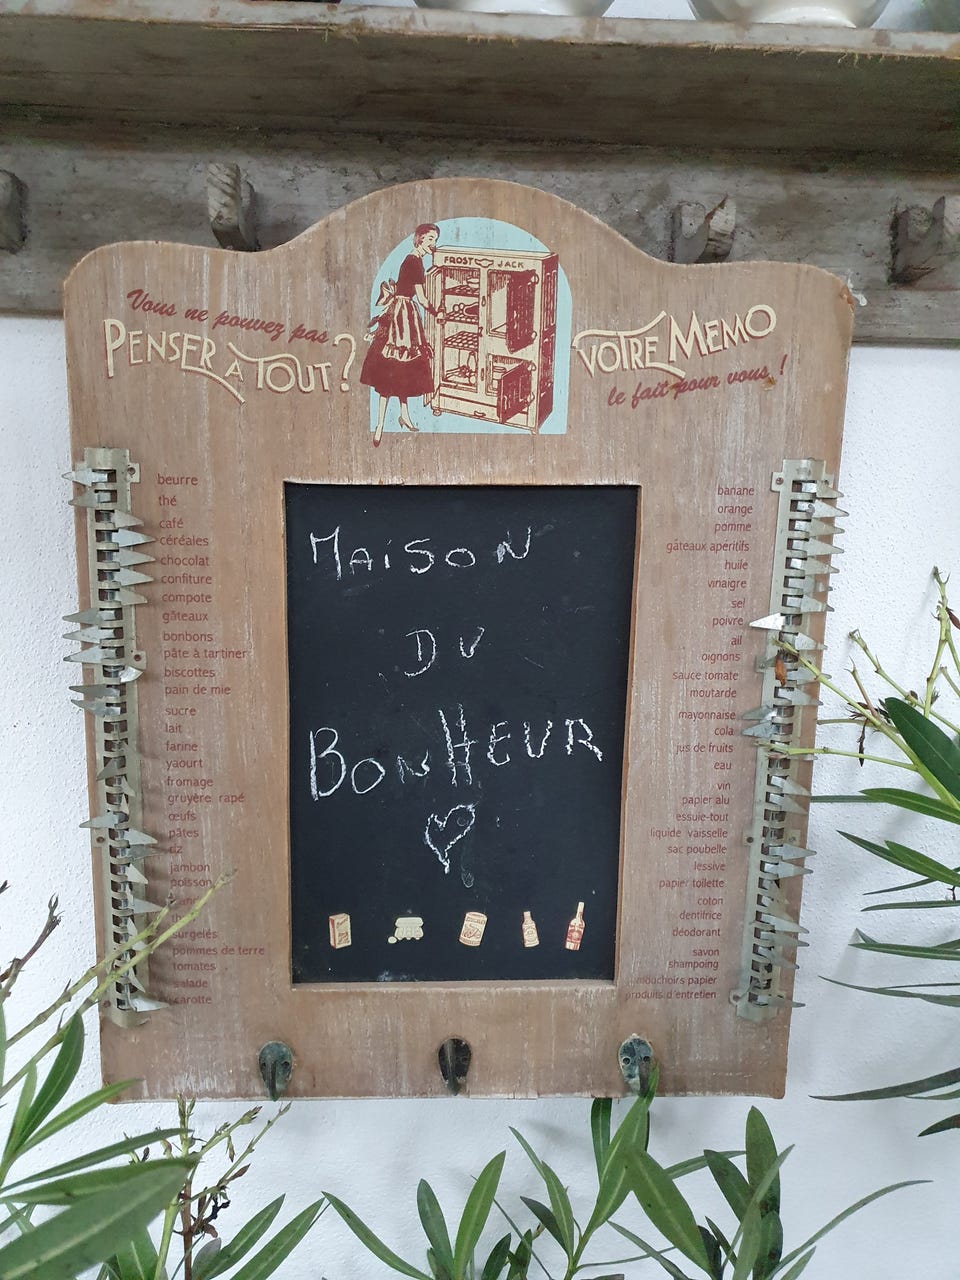 Vous ne pouvez pas
PENSER À TOUT ?
FROST JACK
VOTRE MEMO
le fait pour vous !
beurre
thé
café
céréales
chocolat
confiture
compote
gâteaux
bonbons
pâte à tartiner
biscottes
pain de mie
sucre
lait
farine
yaourt
fromage
gruyère rapé
œufs
pâtes
riz
jambon
poisson
surgelés
pommes de terre
tomates
salade
carotte
MAiSON
DU
BONHEUR
banane
orange
pomme
gâteaux apéritifs
huile
vinaigre
sel
poivre
ail
oignons
sauce tomate
moutarde
mayonnaise
cola
jus de fruits
eau
vin
papier alu
essuie-tout
liquide vaisselle
sac poubelle
lessive
papier toilette
coton
dentifrice
déodorant
savon
shampoing
mouchoirs papier
produits d'entretien